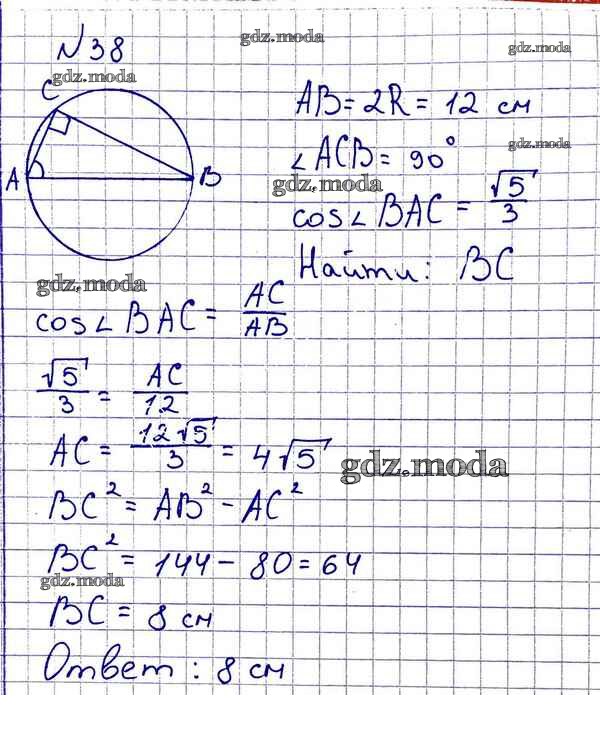 N38
gdz.moda
gdz.moda
gdz.moda
C
A
B
AB = 2R = 12 см
∠ACB = 90°
gdz.moda
gdz.moda
cos∠BAC = √5/3
Найти: BC
gdz.moda
cos∠BAC = AC/AB
√5/3 = AC/12
AC = 12√5/3 = 4√5
gdz.moda
BC² = AB² - AC²
BC² = 144 - 80 = 64
gdz.moda
BC = 8 см
Ответ: 8 см